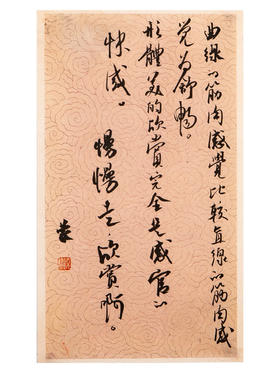 曲線的筋肉感覺比較直線的筋肉感
覺為舒暢。
形體美的欣賞完全是感官的
快感。
慢慢走,欣賞啊。